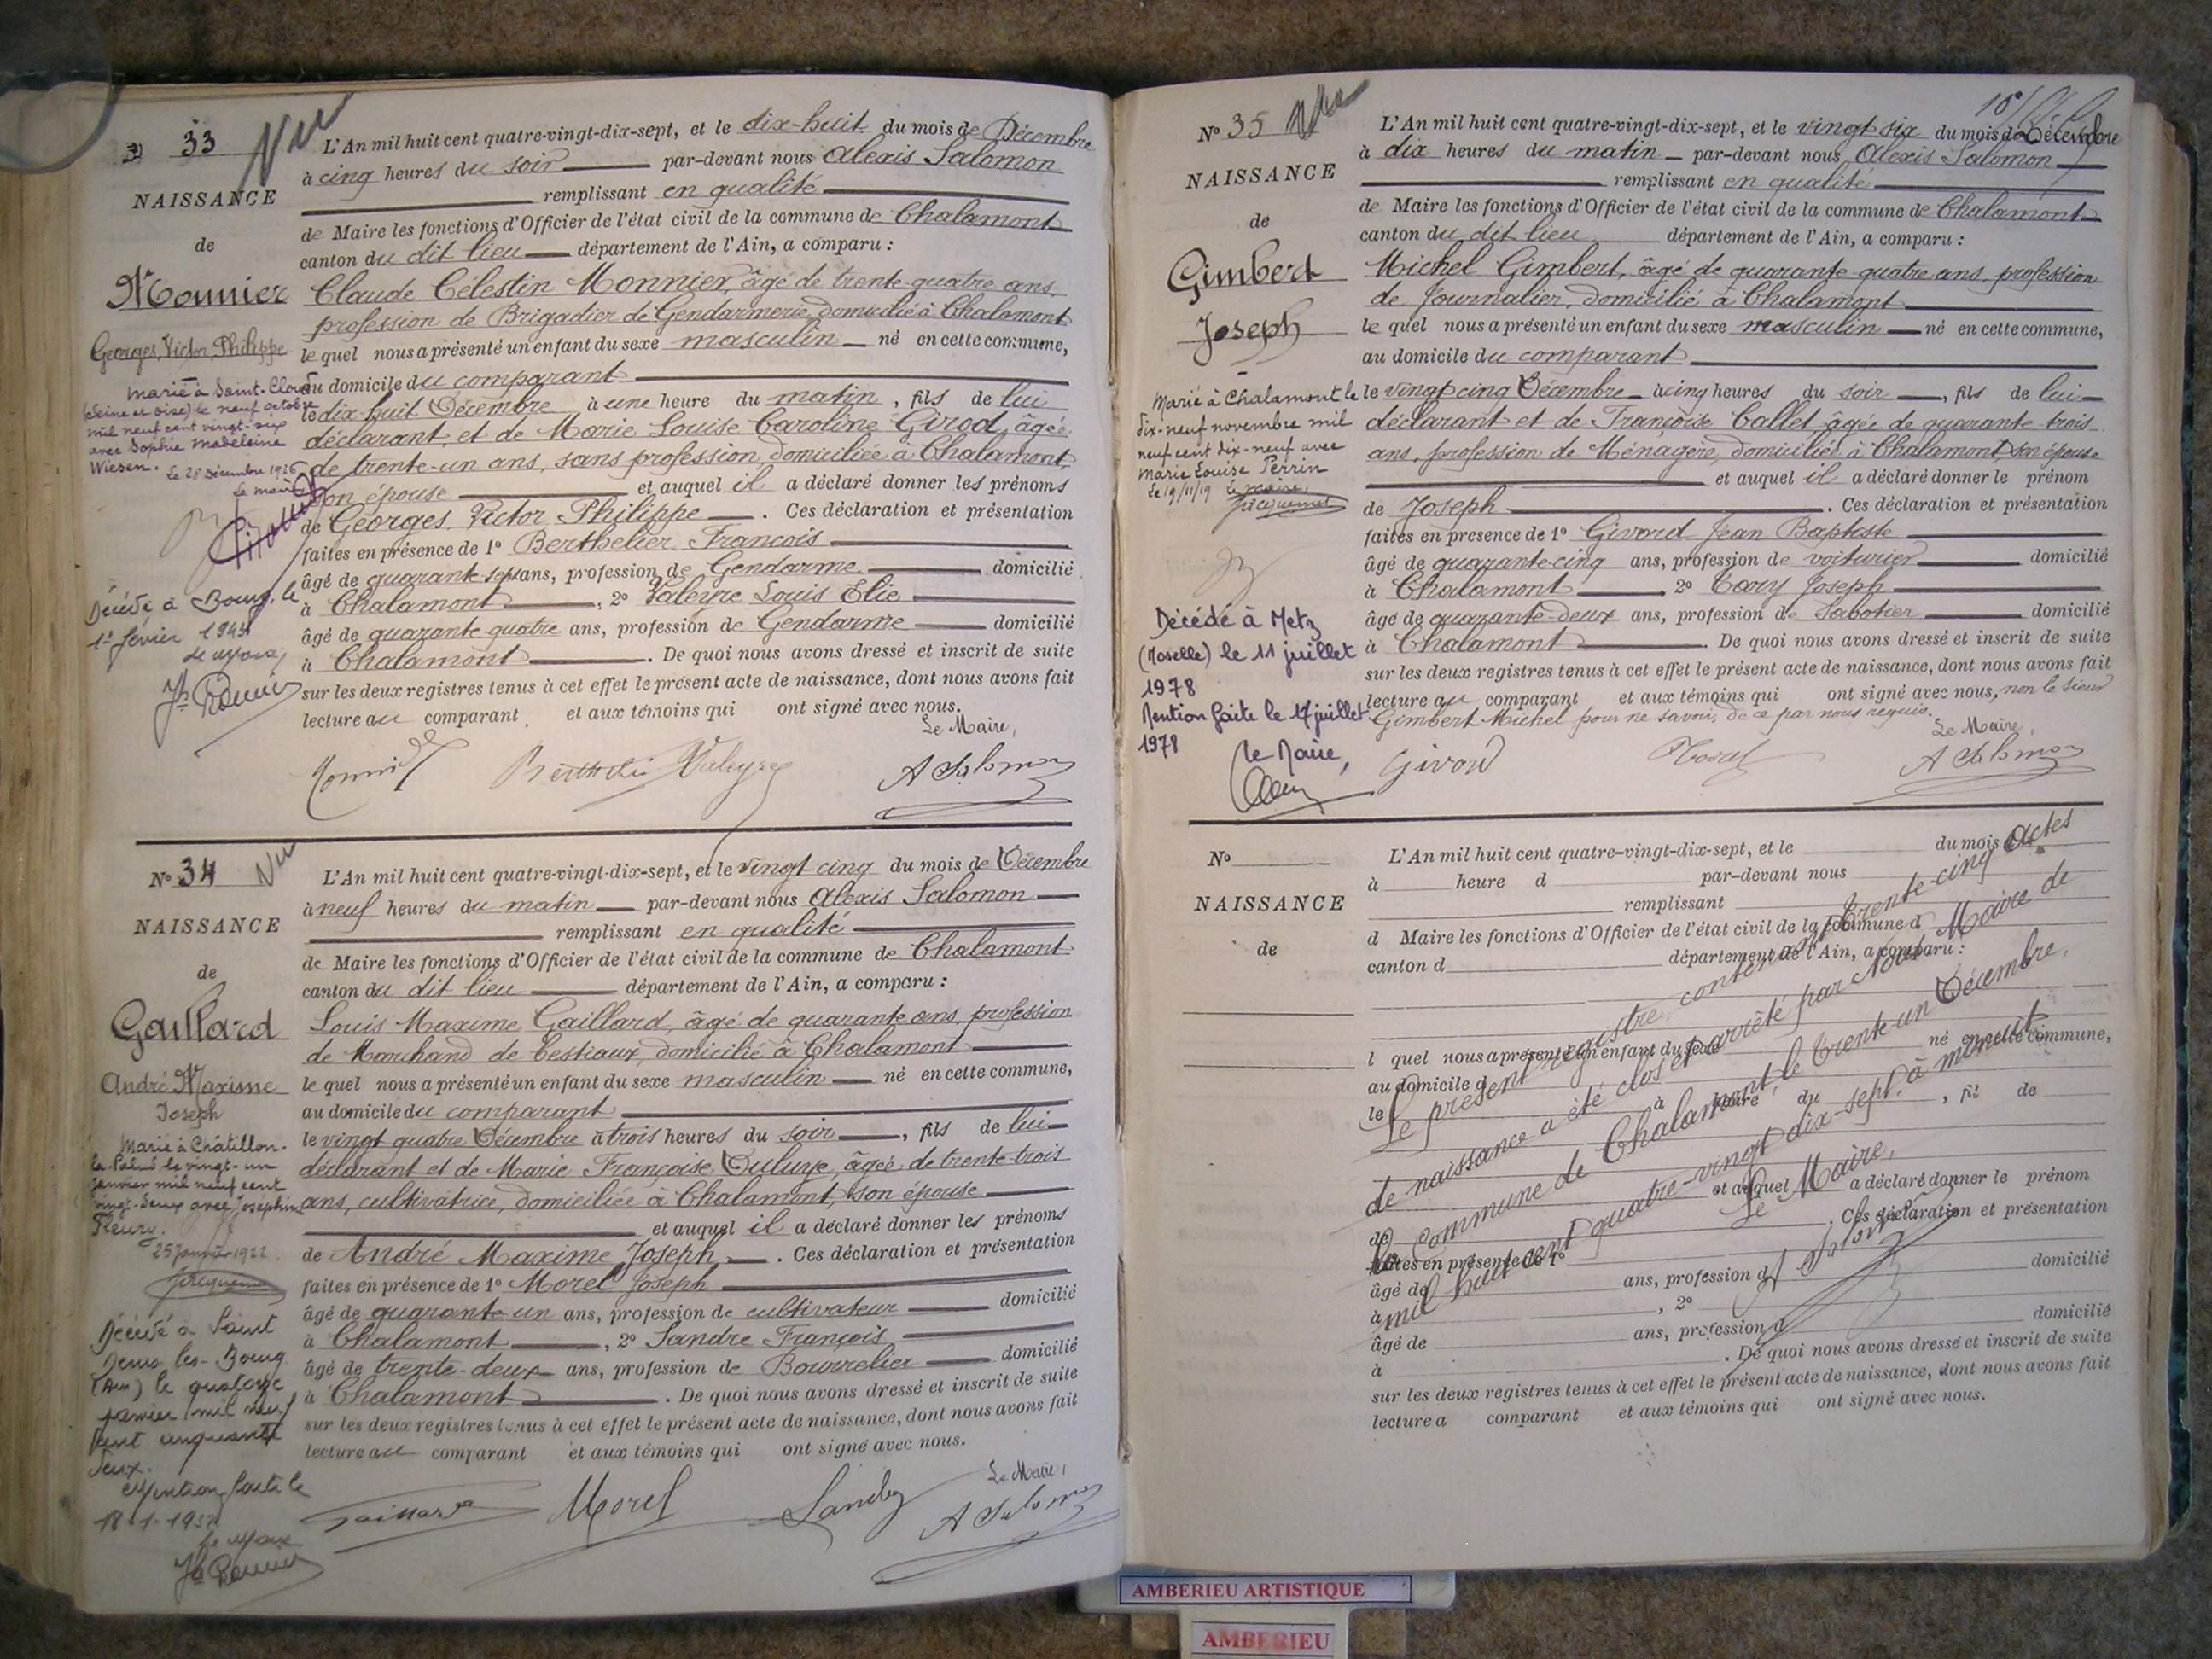 N° 33
Vu
NAISSANCE
de
Monnier
Georges, Victor, Philippe
Marié à Saint-Cloud
(Seine et Oise) le neuf octobre
mil neuf cent vingt-six
avec Sophie Madeleine
Wiesen.
Le 28 Décembre 1926
Le maire
Décédé à Bourg, le
1er février 1943
Le Maire
L'An mil huit cent quatre-vingt-dix-sept, et le dix-huit du mois de Décembre
à cinq heures du soir par-devant nous Alexis Salomon
remplissant en qualité
de Maire les fonctions d'Officier de l'état civil de la commune de Chalamont
canton du dit lieu département de l'Ain, a comparu :
Claude Célestin Monnier, âgé de trente-quatre ans,
profession de Brigadier de Gendarmerie, domicilié à Chalamont
le quel nous a présenté un enfant du sexe masculin né en cette commune,
au domicile du comparant
le dix-huit Décembre à une heure du matin, fils de lui
déclarant, et de Marie Louise Caroline Girod, âgée
de trente-un ans, sans profession, domiciliée à Chalamont,
son épouse et auquel il a déclaré donner les prénoms
de Georges, Victor, Philippe. Ces déclaration et présentation
faites en présence de 1° Berthelier François
âgé de quarante sept ans, profession de Gendarme domicilié
à Chalamont, 2° Valeyre Louis Elie
âgé de quarante-quatre ans, profession de Gendarme domicilié
à Chalamont. De quoi nous avons dressé et inscrit de suite
sur les deux registres tenus à cet effet le présent acte de naissance, dont nous avons fait
lecture au comparant et aux témoins qui ont signé avec nous.
Le Maire,
Berthelier Valeyre A Salomon
N° 34
Vu
NAISSANCE
de
Gaillard
André Maxime
Joseph
Marié à Châtillon-
la-Palud le vingt-un
janvier mil neuf cent
vingt-deux avec Joséphine
Fleury.
25 janvier 1922
Décédé à Saint
Denis-les-Bourg
(Ain) le quatorze
janvier mil neuf
cent cinquante
deux.
Mention faite le
18-1-1952
Le Maire
L'An mil huit cent quatre-vingt-dix-sept, et le vingt cinq du mois de Décembre
à neuf heures du matin par-devant nous Alexis Salomon
remplissant en qualité
de Maire les fonctions d'Officier de l'état civil de la commune de Chalamont
canton du dit lieu département de l'Ain, a comparu :
Louis Maxime Gaillard, âgé de quarante ans, profession
de Marchand de bestiaux, domicilié à Chalamont
le quel nous a présenté un enfant du sexe masculin né en cette commune,
au domicile du comparant
le vingt quatre Décembre à trois heures du soir, fils de lui
déclarant et de Marie Françoise Duluye, âgée de trente-trois
ans, cultivatrice, domiciliée à Chalamont, son épouse
et auquel il a déclaré donner les prénoms
de André Maxime Joseph. Ces déclaration et présentation
faites en présence de 1° Morel Joseph
âgé de quarante-un ans, profession de cultivateur domicilié
à Chalamont, 2° Sandre François
âgé de trente-deux ans, profession de Bourrelier domicilié
à Chalamont. De quoi nous avons dressé et inscrit de suite
sur les deux registres tenus à cet effet le présent acte de naissance, dont nous avons fait
lecture au comparant et aux témoins qui ont signé avec nous.
Le Maire,
Gaillard Morel A Salomon
N° 35
NAISSANCE
de
Gimbert
Joseph
Marié à Chalamont le
dix-neuf novembre mil
neuf cent dix-neuf avec
Marie Louise Perrin
Le 19/11/19 Le maire,
Décédé à Metz
(Moselle) le 11 juillet
1978
Mention faite le 17 juillet
1978
Le Maire,
L'An mil huit cent quatre-vingt-dix-sept, et le vingt six du mois de Décembre
à dix heures du matin par-devant nous Alexis Salomon
remplissant en qualité
de Maire les fonctions d'Officier de l'état civil de la commune de Chalamont
canton du dit lieu département de l'Ain, a comparu :
Michel Gimbert, âgé de quarante-quatre ans, profession
de Journalier, domicilié à Chalamont
le quel nous a présenté un enfant du sexe masculin né en cette commune,
au domicile du comparant
le vingt cinq Décembre à cinq heures du soir, fils de lui
déclarant et de Françoise Callet, âgée de quarante-trois
ans, profession de Ménagère, domiciliée à Chalamont, son épouse
et auquel il a déclaré donner le prénom
de Joseph. Ces déclaration et présentation
faites en présence de 1° Givord Jean Baptiste
âgé de quarante-cinq ans, profession de voiturier domicilié
à Chalamont, 2° Joseph
âgé de quarante-deux ans, profession de Sabotier domicilié
à Chalamont. De quoi nous avons dressé et inscrit de suite
sur les deux registres tenus à cet effet le présent acte de naissance, dont nous avons fait
lecture au comparant et aux témoins qui ont signé avec nous, non le sieur
Gimbert Michel pour ne savoir, de ce par nous requis.
Le Maire,
Givord A Salomon
N°
NAISSANCE
de
L'An mil huit cent quatre-vingt-dix-sept, et le du mois
à heure d par-devant nous
remplissant
d Maire les fonctions d'Officier de l'état civil de la commune d
canton d département de l'Ain, a comparu :
l quel nous a présenté un enfant du sexe né en cette commune,
au domicile d
le à heure du , fil de
et auquel a déclaré donner le prénom
de . Ces déclaration et présentation
faites en présence de 1°
âgé de ans, profession d domicilié
à , 2°
âgé de ans, profession d domicilié
à . De quoi nous avons dressé et inscrit de suite
sur les deux registres tenus à cet effet le présent acte de naissance, dont nous avons fait
lecture a comparant et aux témoins qui ont signé avec nous.
Le présent registre contenant trente-cinq actes
de naissance a été clos et arrêté par Nous Maire de
la Commune de Chalamont, le trente-un Décembre,
mil huit cent quatre-vingt dix-sept, à minuit.
Le Maire,
A Salomon
AMBERIEU ARTISTIQUE
AMBERIEU